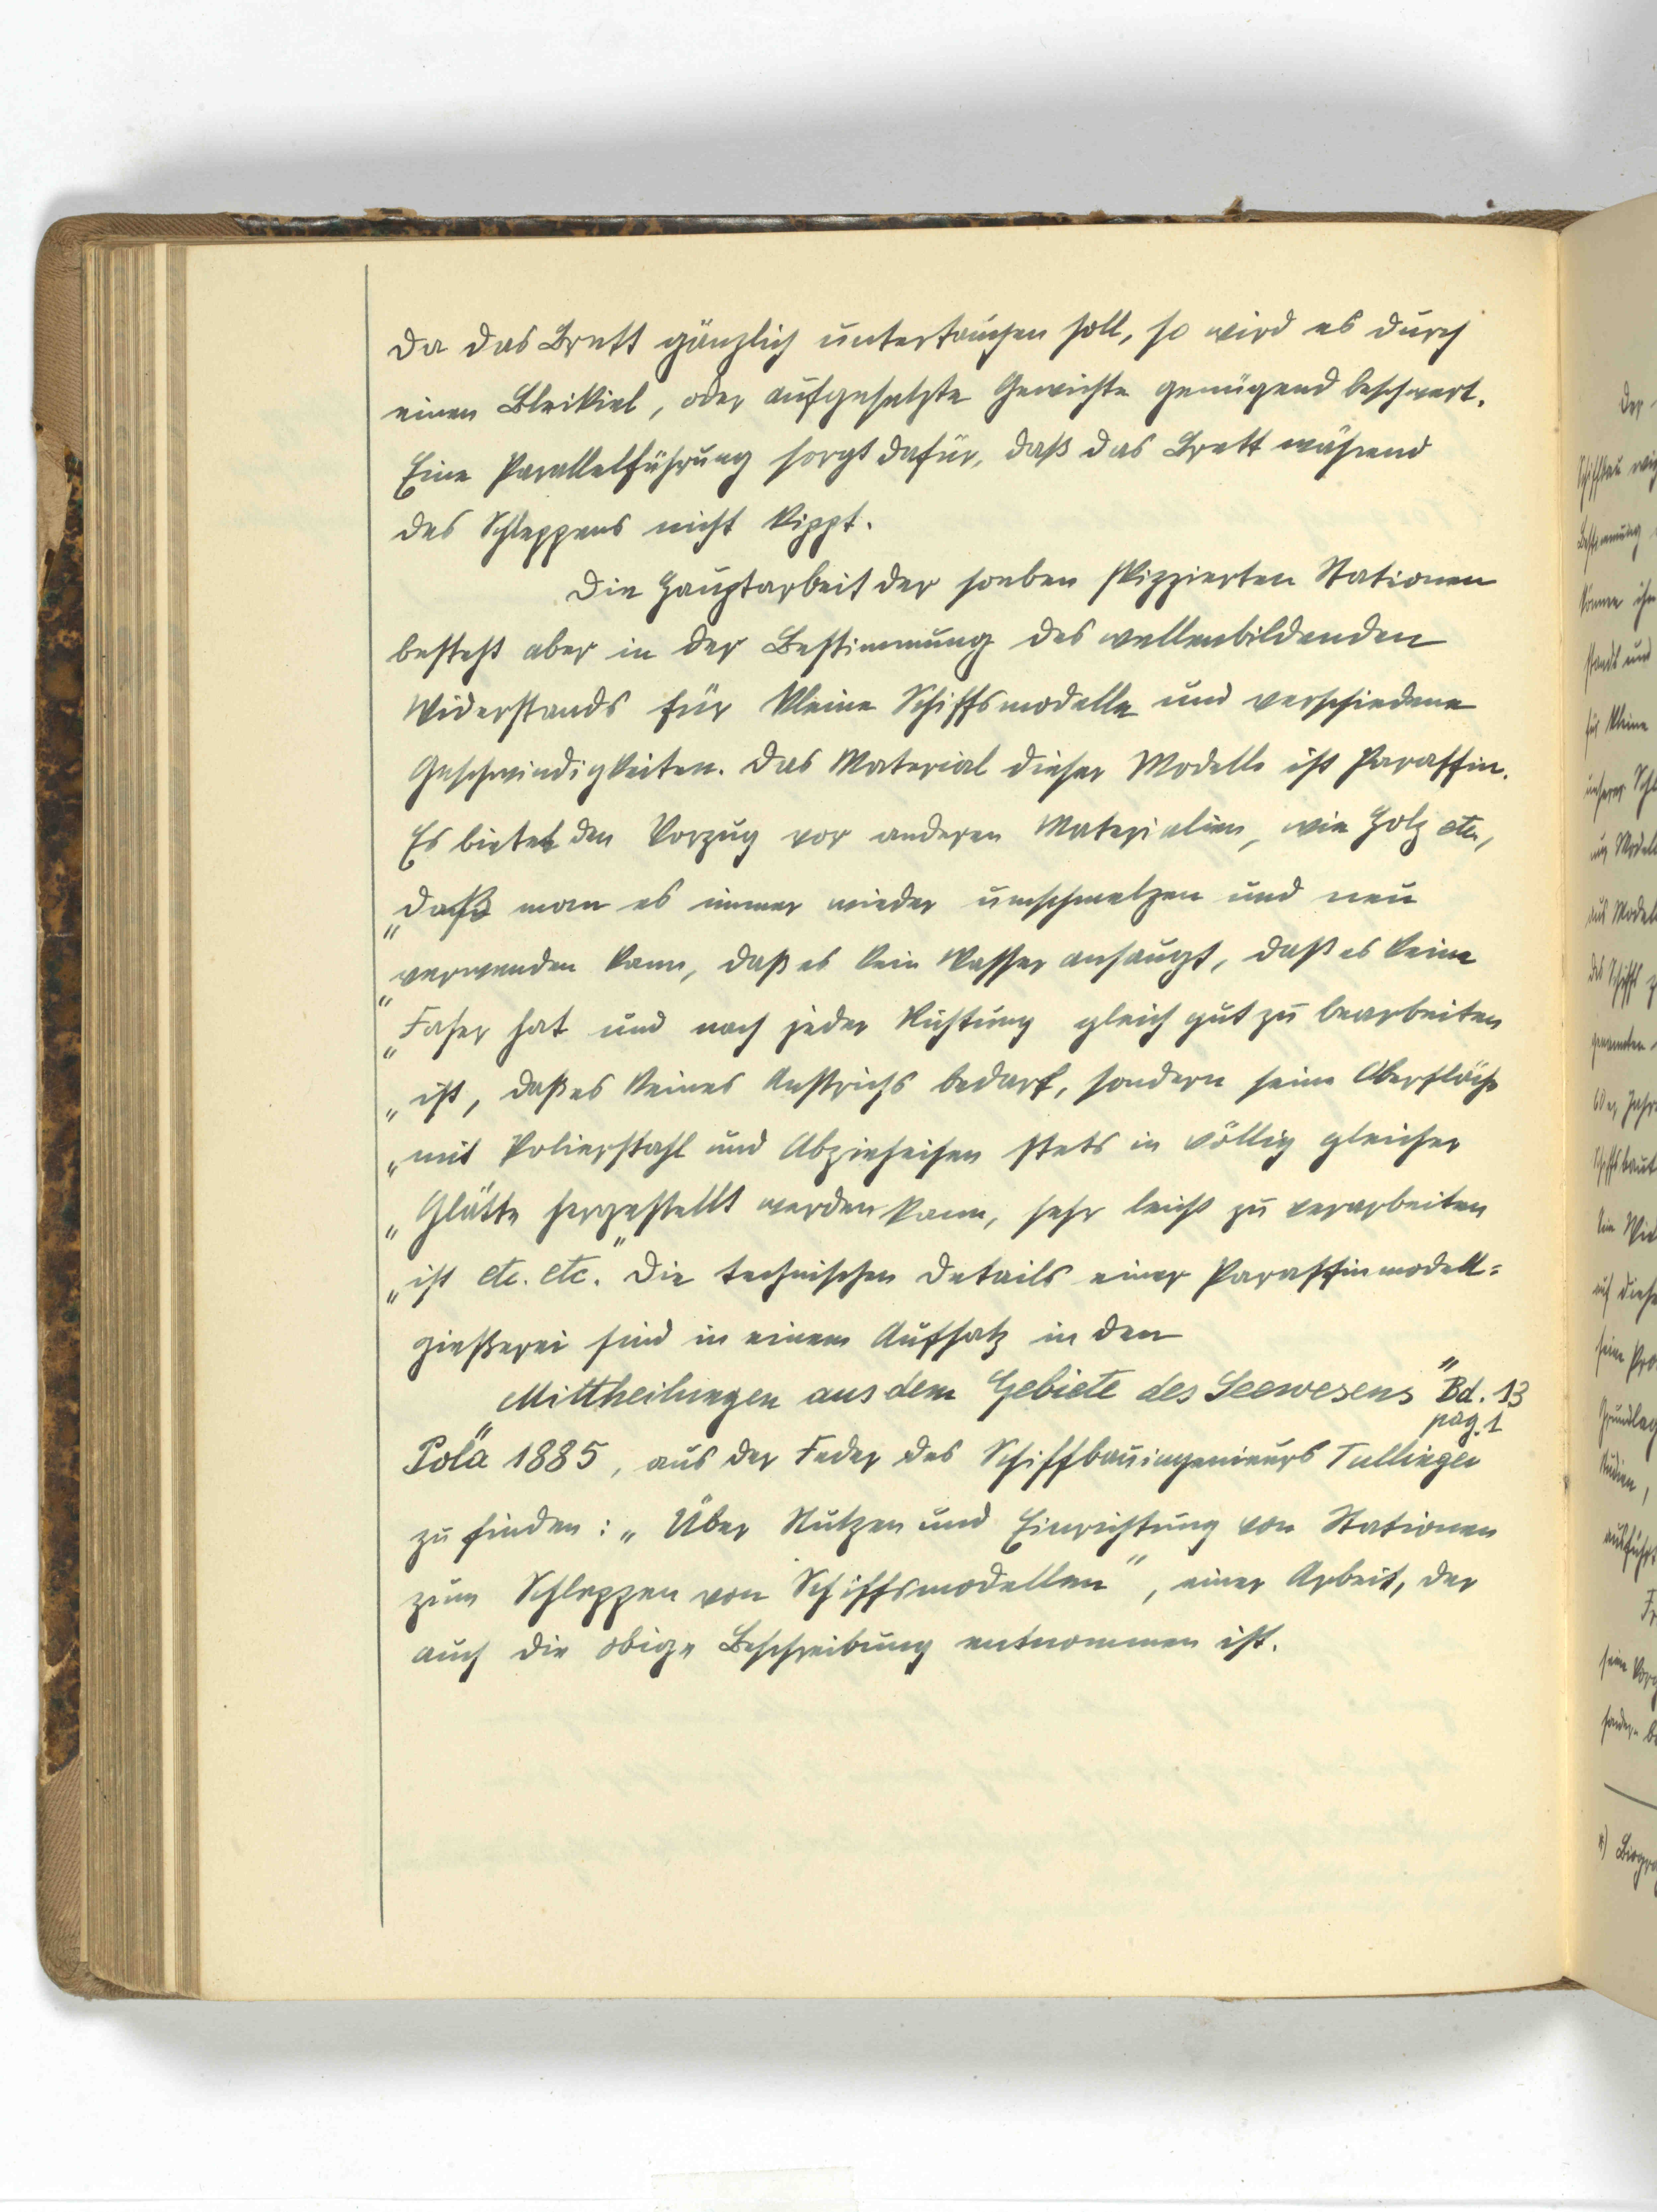 Da das Brett gänzlich untertauchen soll, so wird es durch
einen Bleikiel, oder aufgesetzte Gewichte genügend beschwert.
Eine Parallelführung sorgt dafür, daß das Brett während
des Schleppens nicht kippt.
Die Hauptarbeit der soeben skizzierten Stationen
besteht aber in der Bestimmung des wellenbildenden
Widerstands für kleine Schiffsmodelle und verschiedene
Geschwindigkeiten. Das Material dieser Modelle ist Paraffin.
Es bietet den Vorzug vor anderen Materialien, wie Holz etc.,
„daß man es immer wieder umschmelzen und neu
„verwenden kann, daß es kein Wasser ansaugt, daß es keine
„Faser hat und nach jeder Richtung gleich gut zu bearbeiten
„ist, daß es keines Anstrichs bedarf, sondern seine Oberfläche
„mit Polierstahl und Abzieheisen stets in völlig gleicher
„Glätte hergestellt werden kann, sehr leicht zu verarbeiten
„ist etc. etc." Die technischen Details einer Paraffinmodell=
gießerei sind in einem Aufsatz in den
„Mittheilungen aus dem Gebiete des Seewesens" Bd. 13
pag. 1
Pola 1885, aus der Feder des Schiffbauingenieurs Tullinger
zu finden: „Über Nutzen und Einrichtung von Stationen
zum Schleppen von Schiffsmodellen", einer Arbeit, der
auch die obige Beschreibung entnommen ist.
Der
Schiffbau
Bestimmung
für kleine
unserer
aus Modell
des Schiffs
genannten
60er Jahr
auf diese
seine
Grundlag
Studien,
ausführt
seine
sondern
*) Biogra